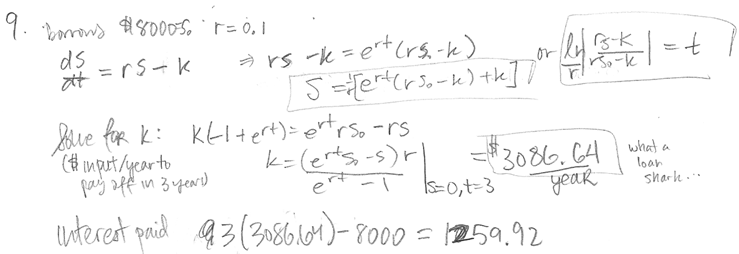 9. borrows $8000=S₀ r=0.1
dS/dt = rS - k ⇒ rs - k = e^{rt}(rS₀ - k) or |ln/r |rS-k/rS₀-k| = t
S = 1/r[e^{rt}(rS₀-k)+k]
Solve for k: k(-1+e^{rt}) = e^{rt}rS₀ - rS
($ input/year to pay off in 3 years) k = (e^{rt}S₀-S)r/e^{rt}-1 |S=0,t=3 = $3086.64/year what a loan shark...
interest paid 3(3086.64) - 8000 = 1259.92